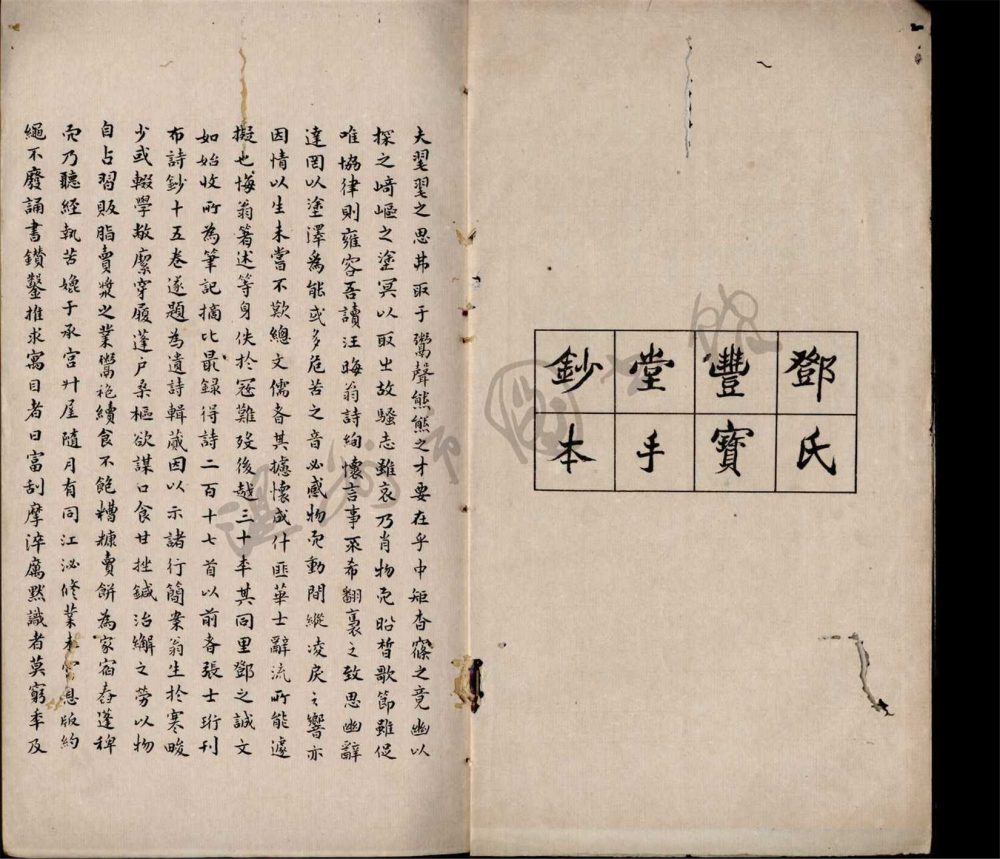 鄧氏
豐寶
堂手
鈔本
夫翆翆之思弗取于鸞聲熊熊之才要在乎中矩杳窱之竟幽以
探之崎嶇之塗冥以取出故騷志雖哀乃肖物而昭晳歌節雖促
唯協律則雍容吾讀汪晦翁詩絢懷言事采希翻裏之致思幽辭
達罔以塗澤為能或多危苦之音必感物而動間縱凌戾之響亦
因情以生未嘗不歎總文儒者其摅懷咸什匪華士辭流所能遽
擬也悔翁箸述等身佚於寇難歿後越三十年其同里鄧之誠文
如始收所為筆記摘比最錄得詩二百十七首以前者張士珩刊
布詩鈔十五卷遂題為遺詩輯蕆因以示諸行簡案翁生於寒畯
少或輟學敝縻穿履蓬戶桑樞欲謀口食甘挫鍼治繲之勞以物
自占習販脂賣漿之業鬻袍續食不飽糟糠賣餅為家宿舂蓬稗
而乃聽經執苦媿于承宮廾屋隨月有同江泌修業未嘗息版約
繩不廢誦書鑽鑿推求寓目者日富刮摩淬厲默識者莫窮年及